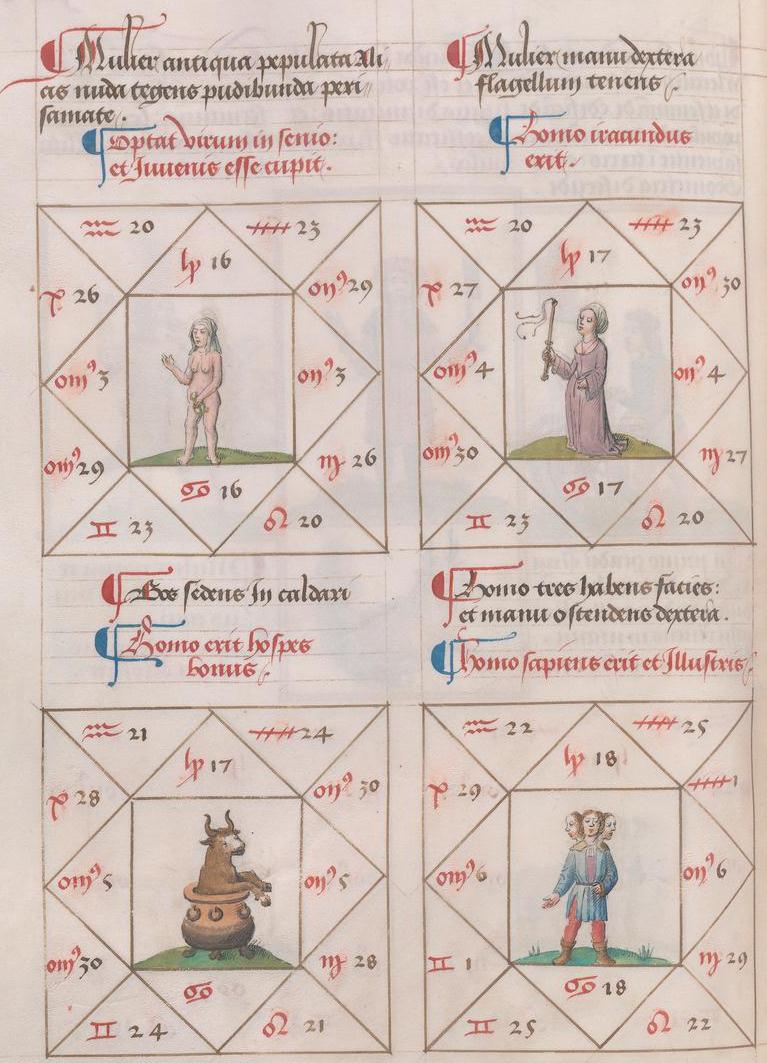 Mulier antiqua pepulata Ali
as nuda tegens pudibunda peri
samate.
Optat virum in senio:
et Iuuenis esse cupit.
Mulier manu dextera
flagellum tenens.
Homo iracundus
exit.
♒ 20
23
16
26
29
3
3
29
♍ 26
♋ 16
♊ 23
♌ 20
♒ 20
23
17
27
30
4
4
30
♍ 27
♋ 17
♊ 23
♌ 20
Bos sedens In caldari
Homo erit hospes
bonus.
Homo tres habens facies:
et manu ostendens dextera.
homo sapiens erit et Illustris.
♒ 21
24
17
28
30
5
5
30
♍ 28
♋
♊ 24
♌ 21
♒ 22
25
18
29
1
6
6
♊ 1
♍ 29
♋ 18
♊ 25
♌ 22